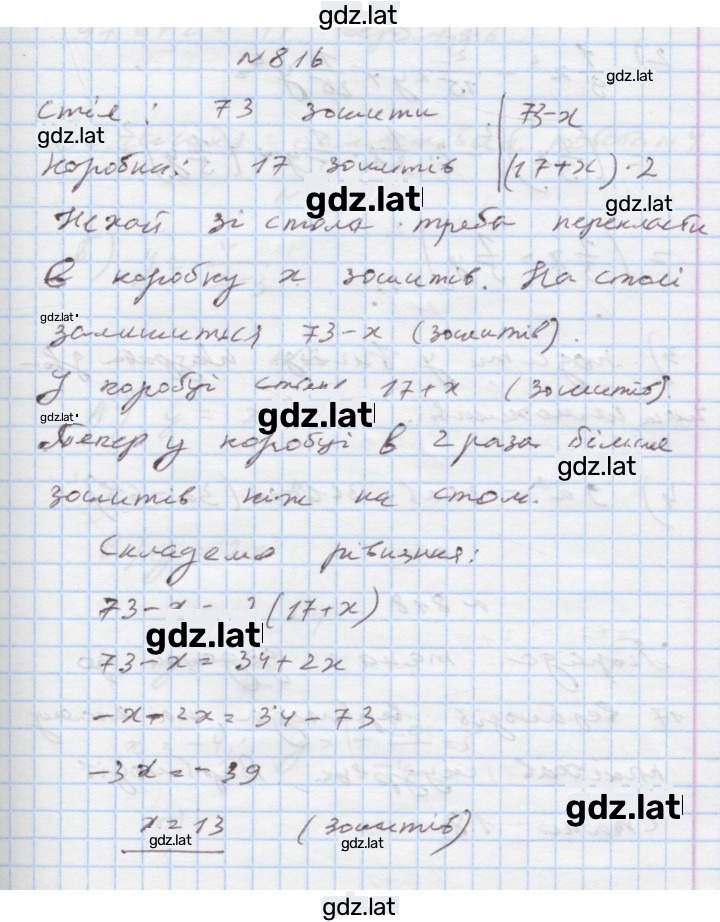 gdz.lat
№816
gdz.lat
стіл: 73 зошити | 73-x
gdz.lat
коробка: 17 зошитів | (17+x)·2
gdz.lat
gdz.lat
Нехай зі стола треба перекласти
в коробку x зошитів. На столі
gdz.lat
залишиться 73-x (зошитів).
У коробці стане 17+x (зошитів)
gdz.lat
gdz.lat
Тепер у коробці в 2 раза більше
gdz.lat
зошитів ніж на столі.
Складемо рівняння:
73-x = 2(17+x)
gdz.lat
73-x = 34+2x
-x-2x=34-73
-3x=-39
gdz.lat
x=13 (зошитів)
gdz.lat
gdz.lat
gdz.lat